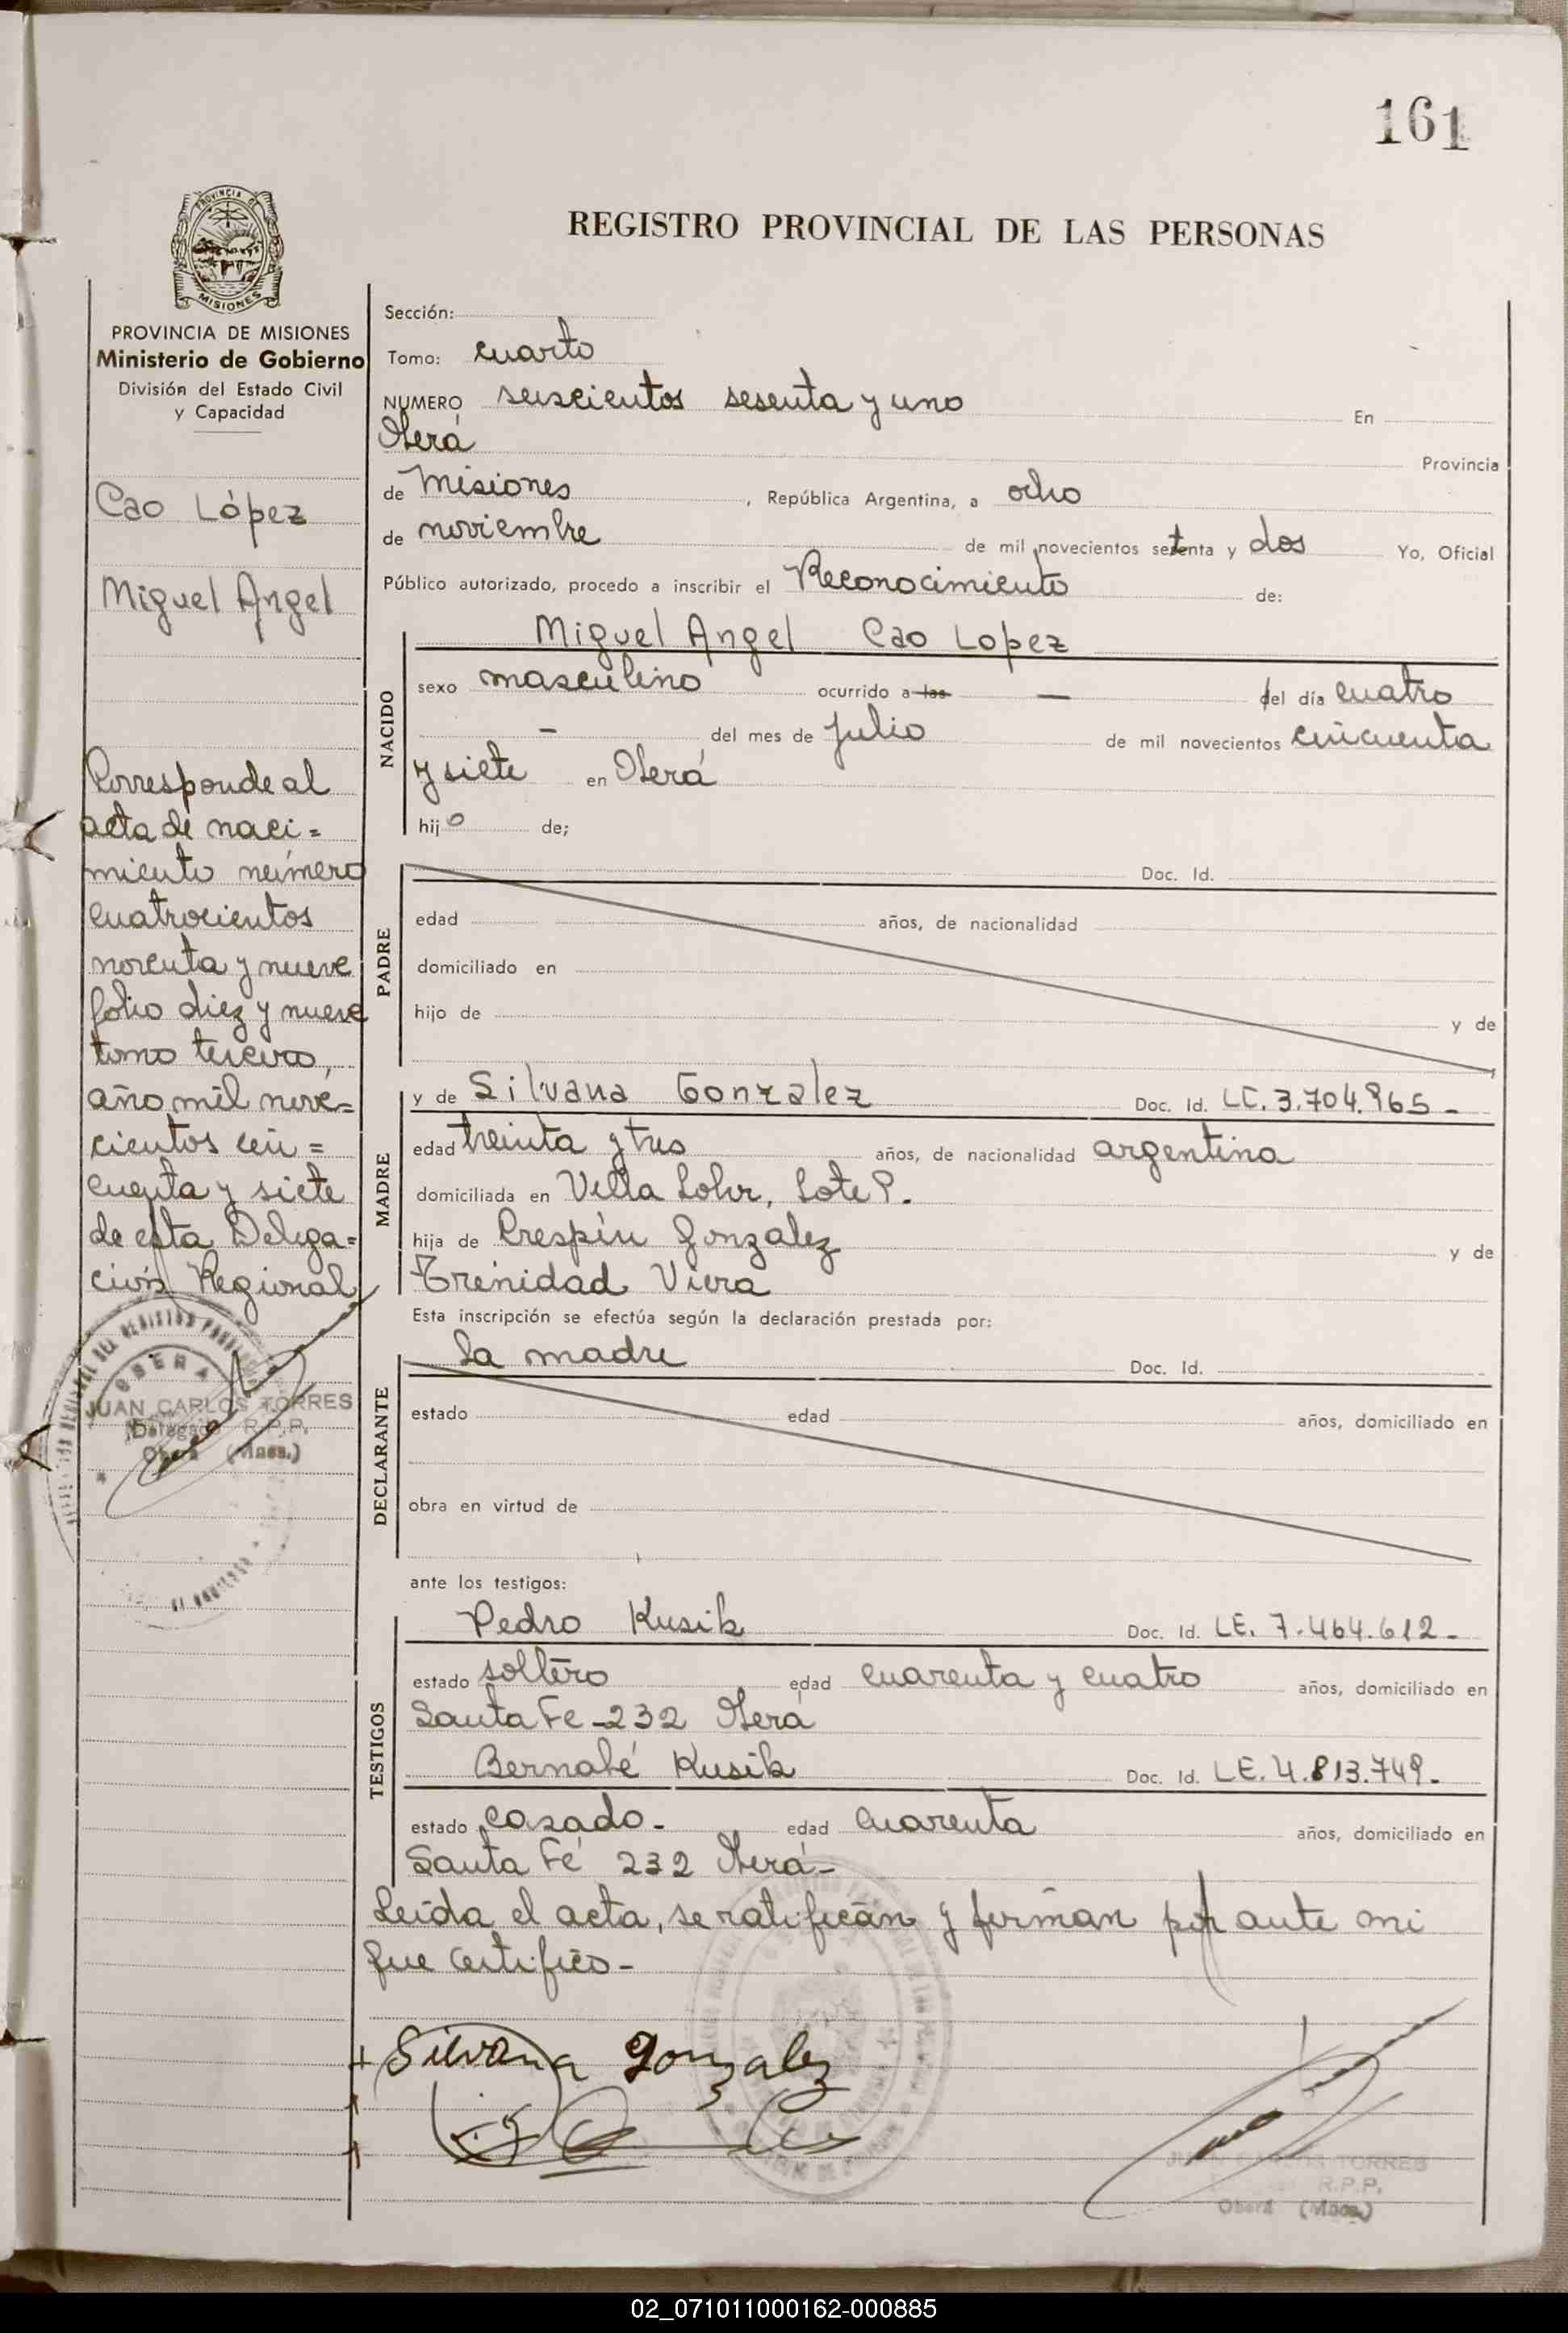 161
REGISTRO PROVINCIAL DE LAS PERSONAS
PROVINCIA DE
MISIONES
PROVINCIA DE MISIONES
Ministerio de Gobierno
División del Estado Civil
y Capacidad
Cao López
Miguel Angel
Corresponde al
acta de naci=
miento número
cuatrocientos
noventa y nueve
folio diez y nueve
tomo tercero,
año mil nove=
cientos cin=
cuenta y siete
de esta Delega=
ción Regional
OBERA
JUAN CARLOS TORRES
Delegado R.P.P.
Oberá (Mnes.)
Sección:
Tomo: cuarto
NUMERO seiscientos sesenta y uno En
Oberá Provincia
de Misiones, República Argentina, a ocho
de noviembre de mil novecientos setenta y dos Yo, Oficial
Público autorizado, procedo a inscribir el Reconocimiento de:
NACIDO
Miguel Angel Cao Lopez
sexo masculino ocurrido a las — del día cuatro
- del mes de julio de mil novecientos cincuenta
y siete en Oberá
hijo de;
PADRE
Doc. Id.
edad años, de nacionalidad
domiciliado en
hijo de y de
MADRE
y de Silvana Gonzalez Doc. Id. LC. 3.704.965-
edad treinta y tres años, de nacionalidad argentina
domiciliada en Villa Lohr, Lote 9.
hija de Crespín Gonzalez y de
Trinidad Viera
Esta inscripción se efectúa según la declaración prestada por:
DECLARANTE
la madre Doc. Id.
estado edad años, domiciliado en
obra en virtud de
ante los testigos:
TESTIGOS
Pedro Kusik Doc. Id. LE. 7.464.612-
estado soltero edad cuarenta y cuatro años, domiciliado en
Santa Fe-232 Oberá
Bernabé Kusik Doc. Id. LE. 4.813.749.
estado casado- edad cuarenta años, domiciliado en
Santa Fé 232 Oberá-
Leída el acta, se ratifican y firman por ante mi
que certifico-
Silvana Gonzalez
JUAN CARLOS TORRES
R.P.P.
Oberá (Mnes.)
02_071011000162-000885